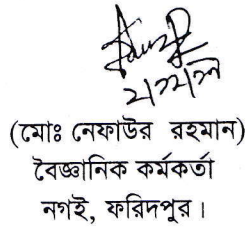 (মোঃ নেফাউর রহমান)
বৈজ্ঞানিক কর্মকর্তা
নগই, ফরিদপুর।